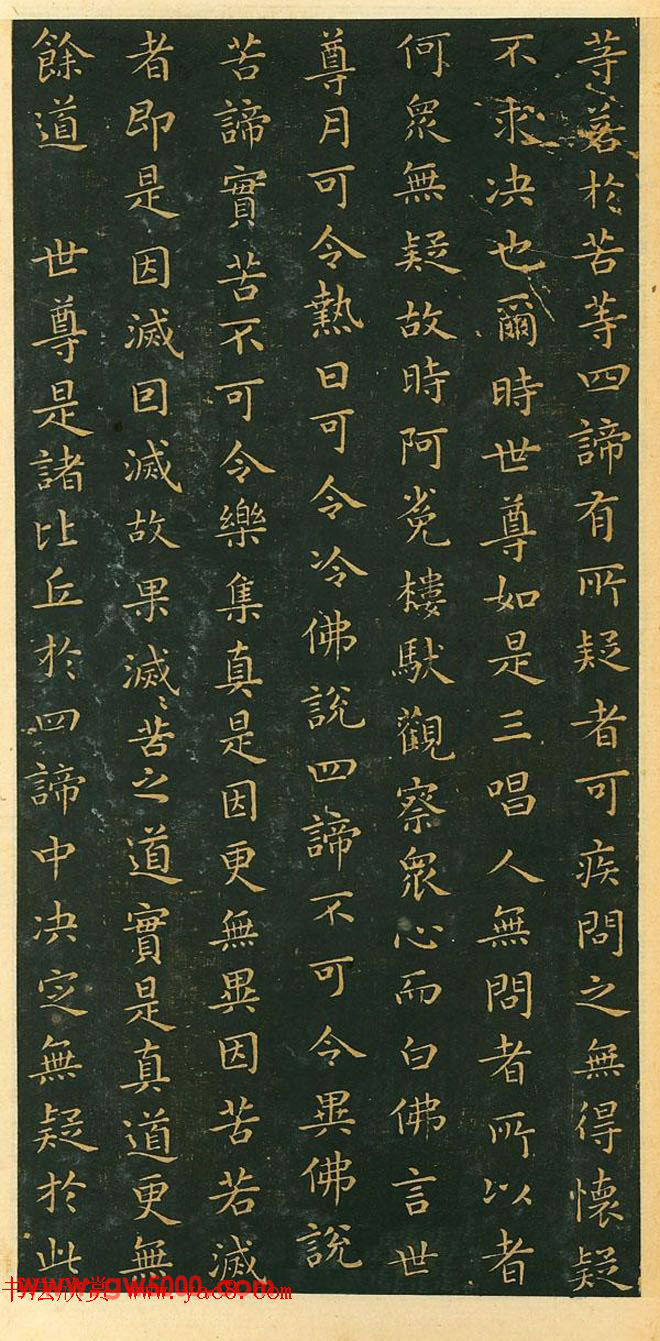 等若於苦等四諦有所疑者可疾問之無得懷疑
不求决也爾時世尊如是三唱人無問者所以者
何衆無疑故時阿㝹樓馱觀察衆心而白佛言世
尊月可令熱日可令冷佛說四諦不可令異佛說
苦諦實苦不可令樂集真是因更無異因苦若滅
者即是因滅因滅故果滅滅苦之道實是真道更無
餘道 世尊是諸比丘於四諦中决定無疑於此
www.yac8.com